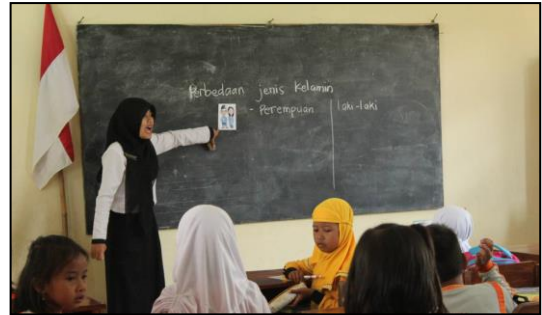 Perbedaan jenis Kelamin
- Perempuan
laki-laki